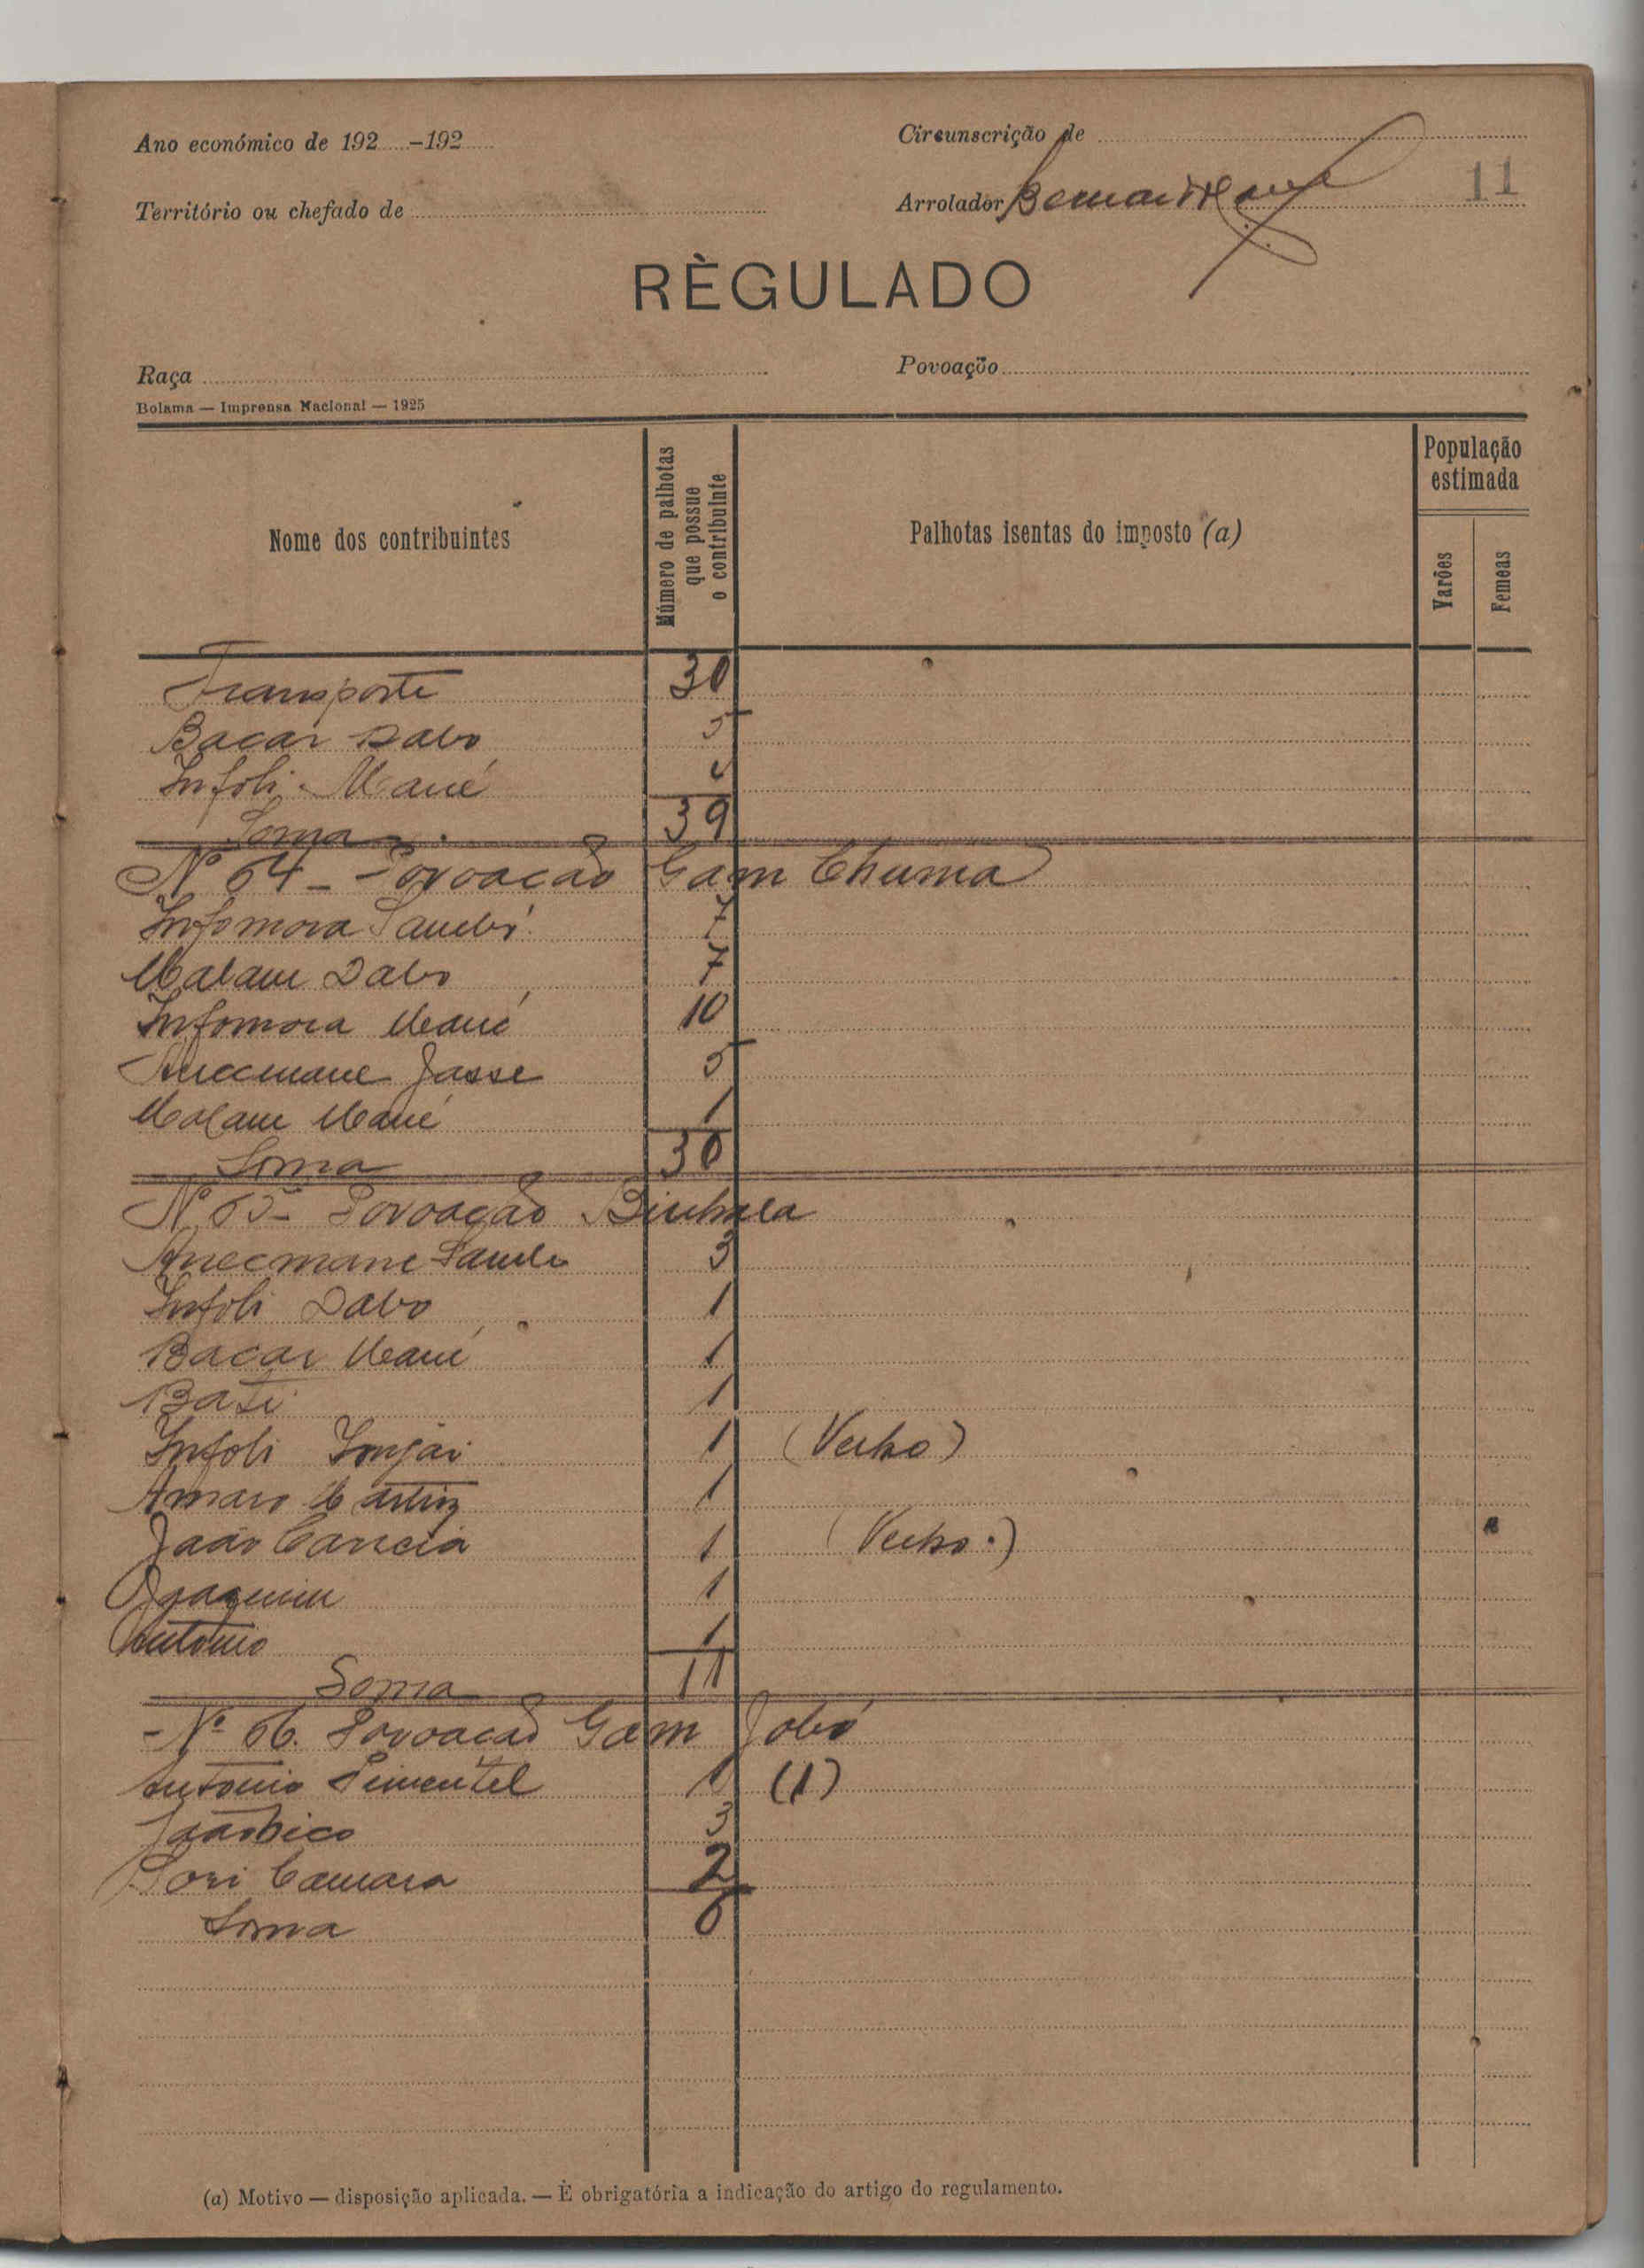 Ano económico de 192 -192
Circunscrição de
Território ou chefado de
Arrolador
11
RÈGULADO
Raça
Povoação
Bolama — Imprensa Nacional — 1925
Nome dos contribuintes
Número de palhotas que possue o contribuinte
Palhotas isentas do imposto (a)
População estimada
Varões
Femeas
Transporte 30
Bacar Dabo 5
Infoli Mané 4
Soma 39
Nº 64 - Povoação Gam Chuma
Infomora Sambú 7
Malam Dabo 7
Infomora Mané 10
Jasse 5
Malam Mané 1
Soma 30
Nº 65 - Povoação
3
Infoli Dabo 1
Bacar Mané 1
1
Infoli Injai 1 (Velho)
Amaro Martins 1
João Garcia 1 (Velho.)
Joaquim 1
António 1
Soma 11
- Nº 66. Povoação Gam Jobó
António Pimentel 1 (1)
João Bico 3
Sori Camara 2
Soma 6
(a) Motivo — disposição aplicada. — È obrigatória a indicação do artigo do regulamento.